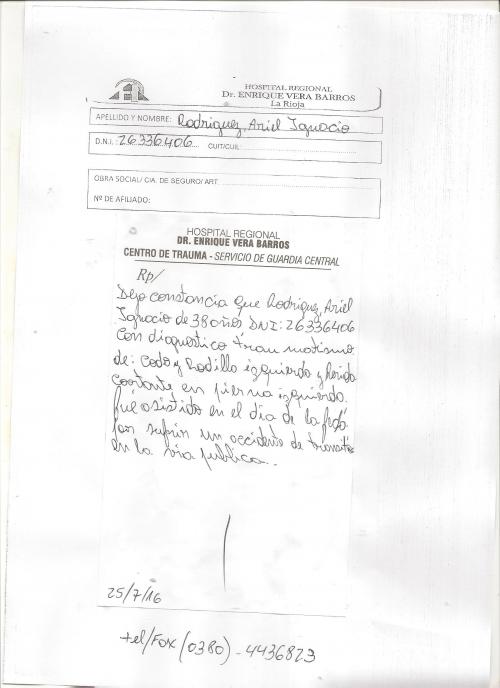 HOSPITAL REGIONAL
Dr. ENRIQUE VERA BARROS
La Rioja
APELLIDO Y NOMBRE: Rodriguez, Ariel Ignacio
D.N.I.: 26336406 CUIT/CUIL:
OBRA SOCIAL/ CIA. DE SEGURO/ ART
Nº DE AFILIADO:
HOSPITAL REGIONAL
DR. ENRIQUE VERA BARROS
CENTRO DE TRAUMA - SERVICIO DE GUARDIA CENTRAL
Rp/
Dejo constancia que Rodriguez, Ariel
Ignacio de 38 años DNI: 26336406
Con diagnostico traumatismo
de: Codo y Rodilla izquierdo y herida
cortante en pierna izquierda.
fue asistido en el dia de la fecha
por sufrir un accidente de transito
en la via publica..
25/7/16
tel/Fax (0380) - 4436823